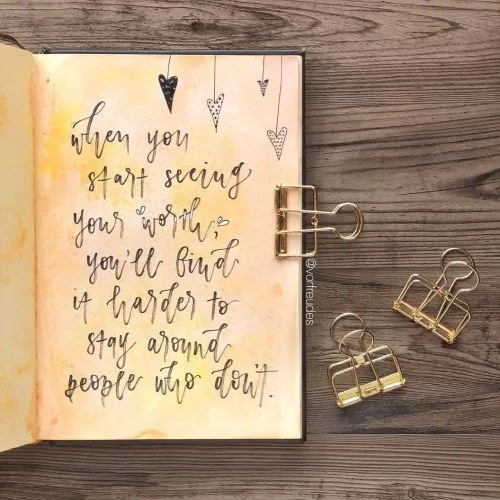 when you
start seeing
your worth,
you'll find
it harder to
stay around
people who don't.
@vorfreudes